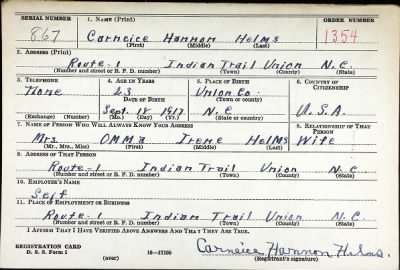 SERIAL NUMBER 1. NAME (Print) ORDER NUMBER
867 Carneice Hannon Helms 1354
(First) (Middle) (Last)
2. ADDRESS (Print)
Route-1 Indian Trail Union N.C.
(Number and street or R. F. D. number) (Town) (County) (State)
3. TELEPHONE 4. AGE IN YEARS 5. PLACE OF BIRTH 6. COUNTRY OF CITIZENSHIP
None 23 Union Co.
DATE OF BIRTH (Town or county)
Sept. 18 1917 N.C. U.S.A.
(Exchange) (Number) (Mo.) (Day) (Yr.) (State or country)
7. NAME OF PERSON WHO WILL ALWAYS KNOW YOUR ADDRESS 8. RELATIONSHIP OF THAT PERSON
Mrs Omma Irene Helms Wife
(Mr., Mrs., Miss) (First) (Middle) (Last)
9. ADDRESS OF THAT PERSON
Route-1 Indian Trail Union N.C
(Number and street or R. F. D. number) (Town) (County) (State)
10. EMPLOYER'S NAME
Self
11. PLACE OF EMPLOYMENT OR BUSINESS
Route-1 Indian Trail Union N.C.
(Number and street or R. F. D. number) (Town) (County) (State)
I AFFIRM THAT I HAVE VERIFIED ABOVE ANSWERS AND THAT THEY ARE TRUE.
REGISTRATION CARD
D. S. S. Form 1 16-17105 Carneice Hannon Helms.
(over) (Registrant's signature)